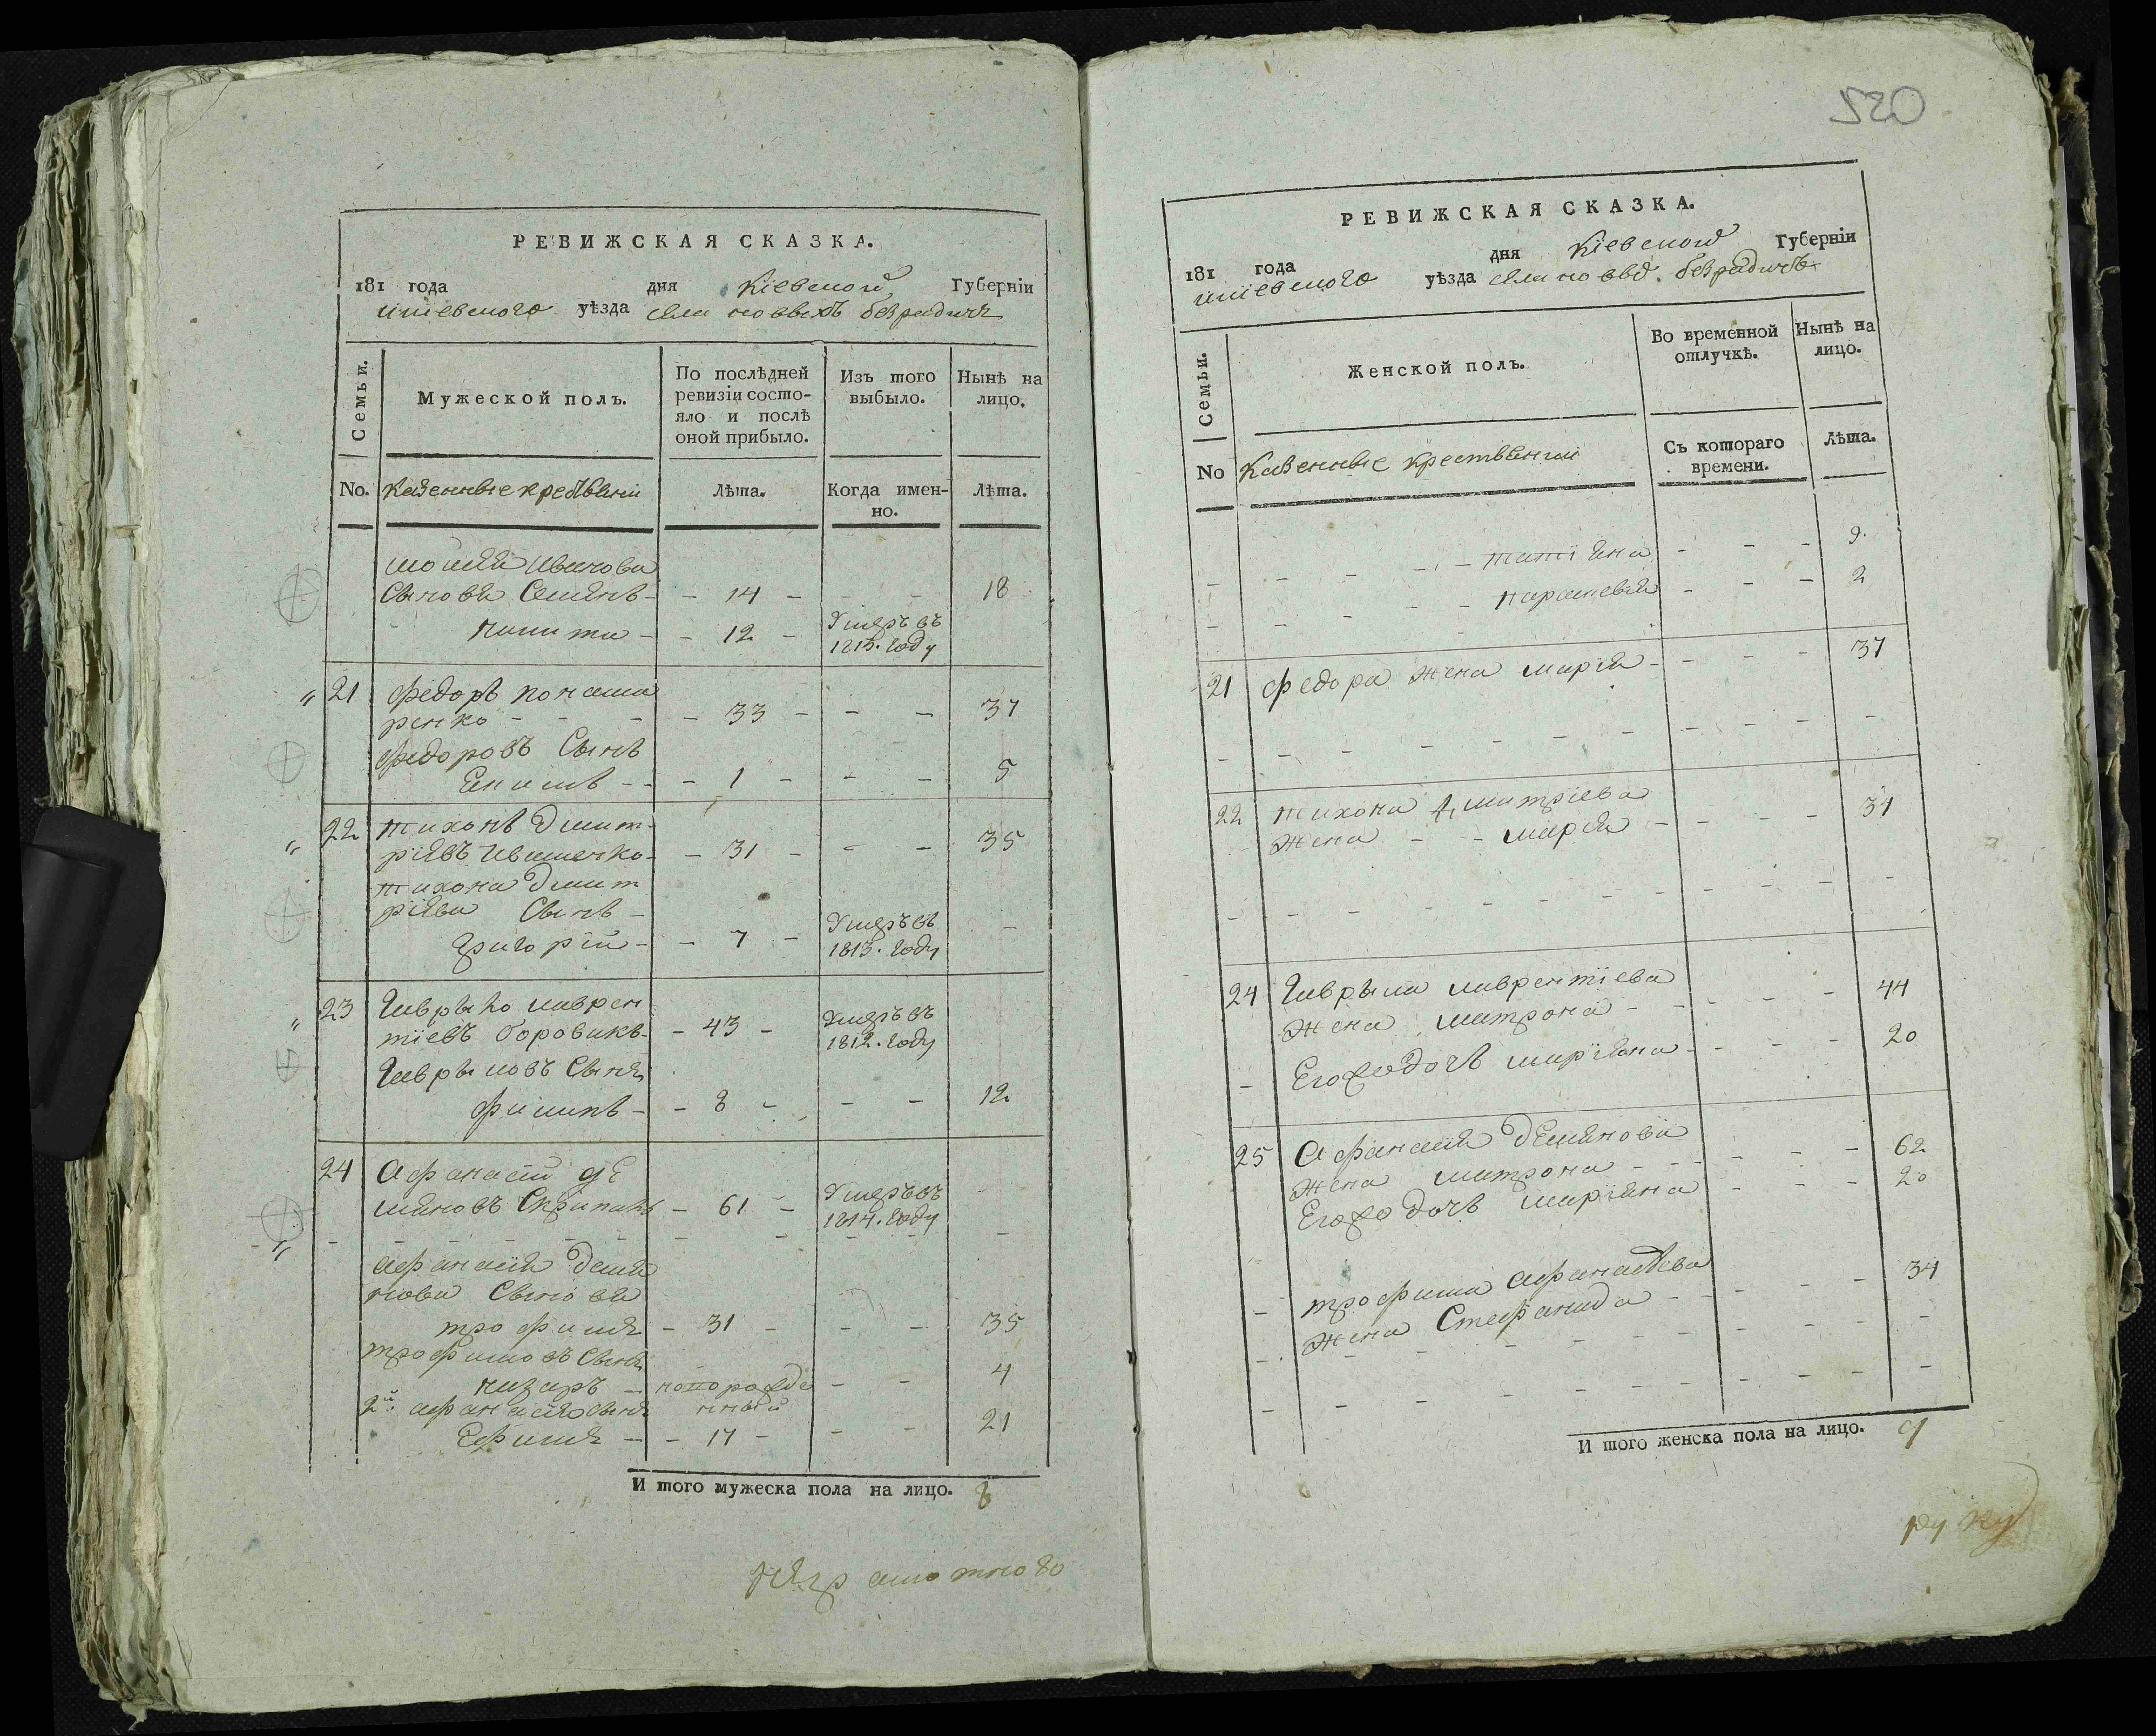 520
РЕВИЖСКАЯ СКАЗКА.
181 года дня Кіевской Губерніи
кіевского уѣзда села новыхъ безрадичъ
Семьи.
Мужеской полъ.
По послѣдней ревизіи состояло и послѣ оной прибыло.
Изъ того выбыло.
Нынѣ на лицо.
No. Казенные
Лѣта.
Когда именно.
Лѣта.
Иванова
Сыновя Семенъ - - 14 - - - 18
никита - - 12 - Умеръ въ
1813. году
21 Федоръ
ренко - - - - 33 - - - 37
Федоровъ Сынъ
- - - 1 - - - 5
22 тихонъ Дмит
ріевъ Иваненко - - 31 - - - 35
тихона Дмит
ріева Сынъ -
Григорій - - 7 - Умеръ въ
1813. году -
23 Гаврыло лаврен
тіевъ боровикъ - - 43 - Умеръ въ
1812. году
Гаврыловъ Сынъ
филипъ - - 8 - - - 12
24 Афанасій де
мяновъ - 61 - Умеръ въ
1814. году
Афанасія Демя
нова Сыновя
трофимъ - 31 - - - 35
трофимовъ Сынъ
назаръ - новорожде - - 4
нный
2й: афанасія Сынъ
Ефимъ - - 17 - - - 21
И того мужеска пола на лицо. 8
РЕВИЖСКАЯ СКАЗКА.
181 года дня Кіевской Губерніи
кіевского уѣзда села новых безрадичъ
Семьи.
Женской полъ.
Во временной отлучкѣ.
Нынѣ на лицо.
No Казенные
Съ котораго времени.
Лѣта.
- - - - - татіяна - - - 9.
- - - - - параскевія - - - 2
21 федора жена марія - - - - 37
22 тихона Дмитріева
жена - - марія - - - - 31
24 Гаврыла лаврентіева
жена матрона - - - - - 44
- Его дочь маріяна - - - - 20
25 Афанасія Демянова
жена матрона - - - - - - 62
Его дочь маріяна - - - 20
- трофима афанасіева
жена Стефанида - - - - 34
И того женска пола на лицо. 9
руку